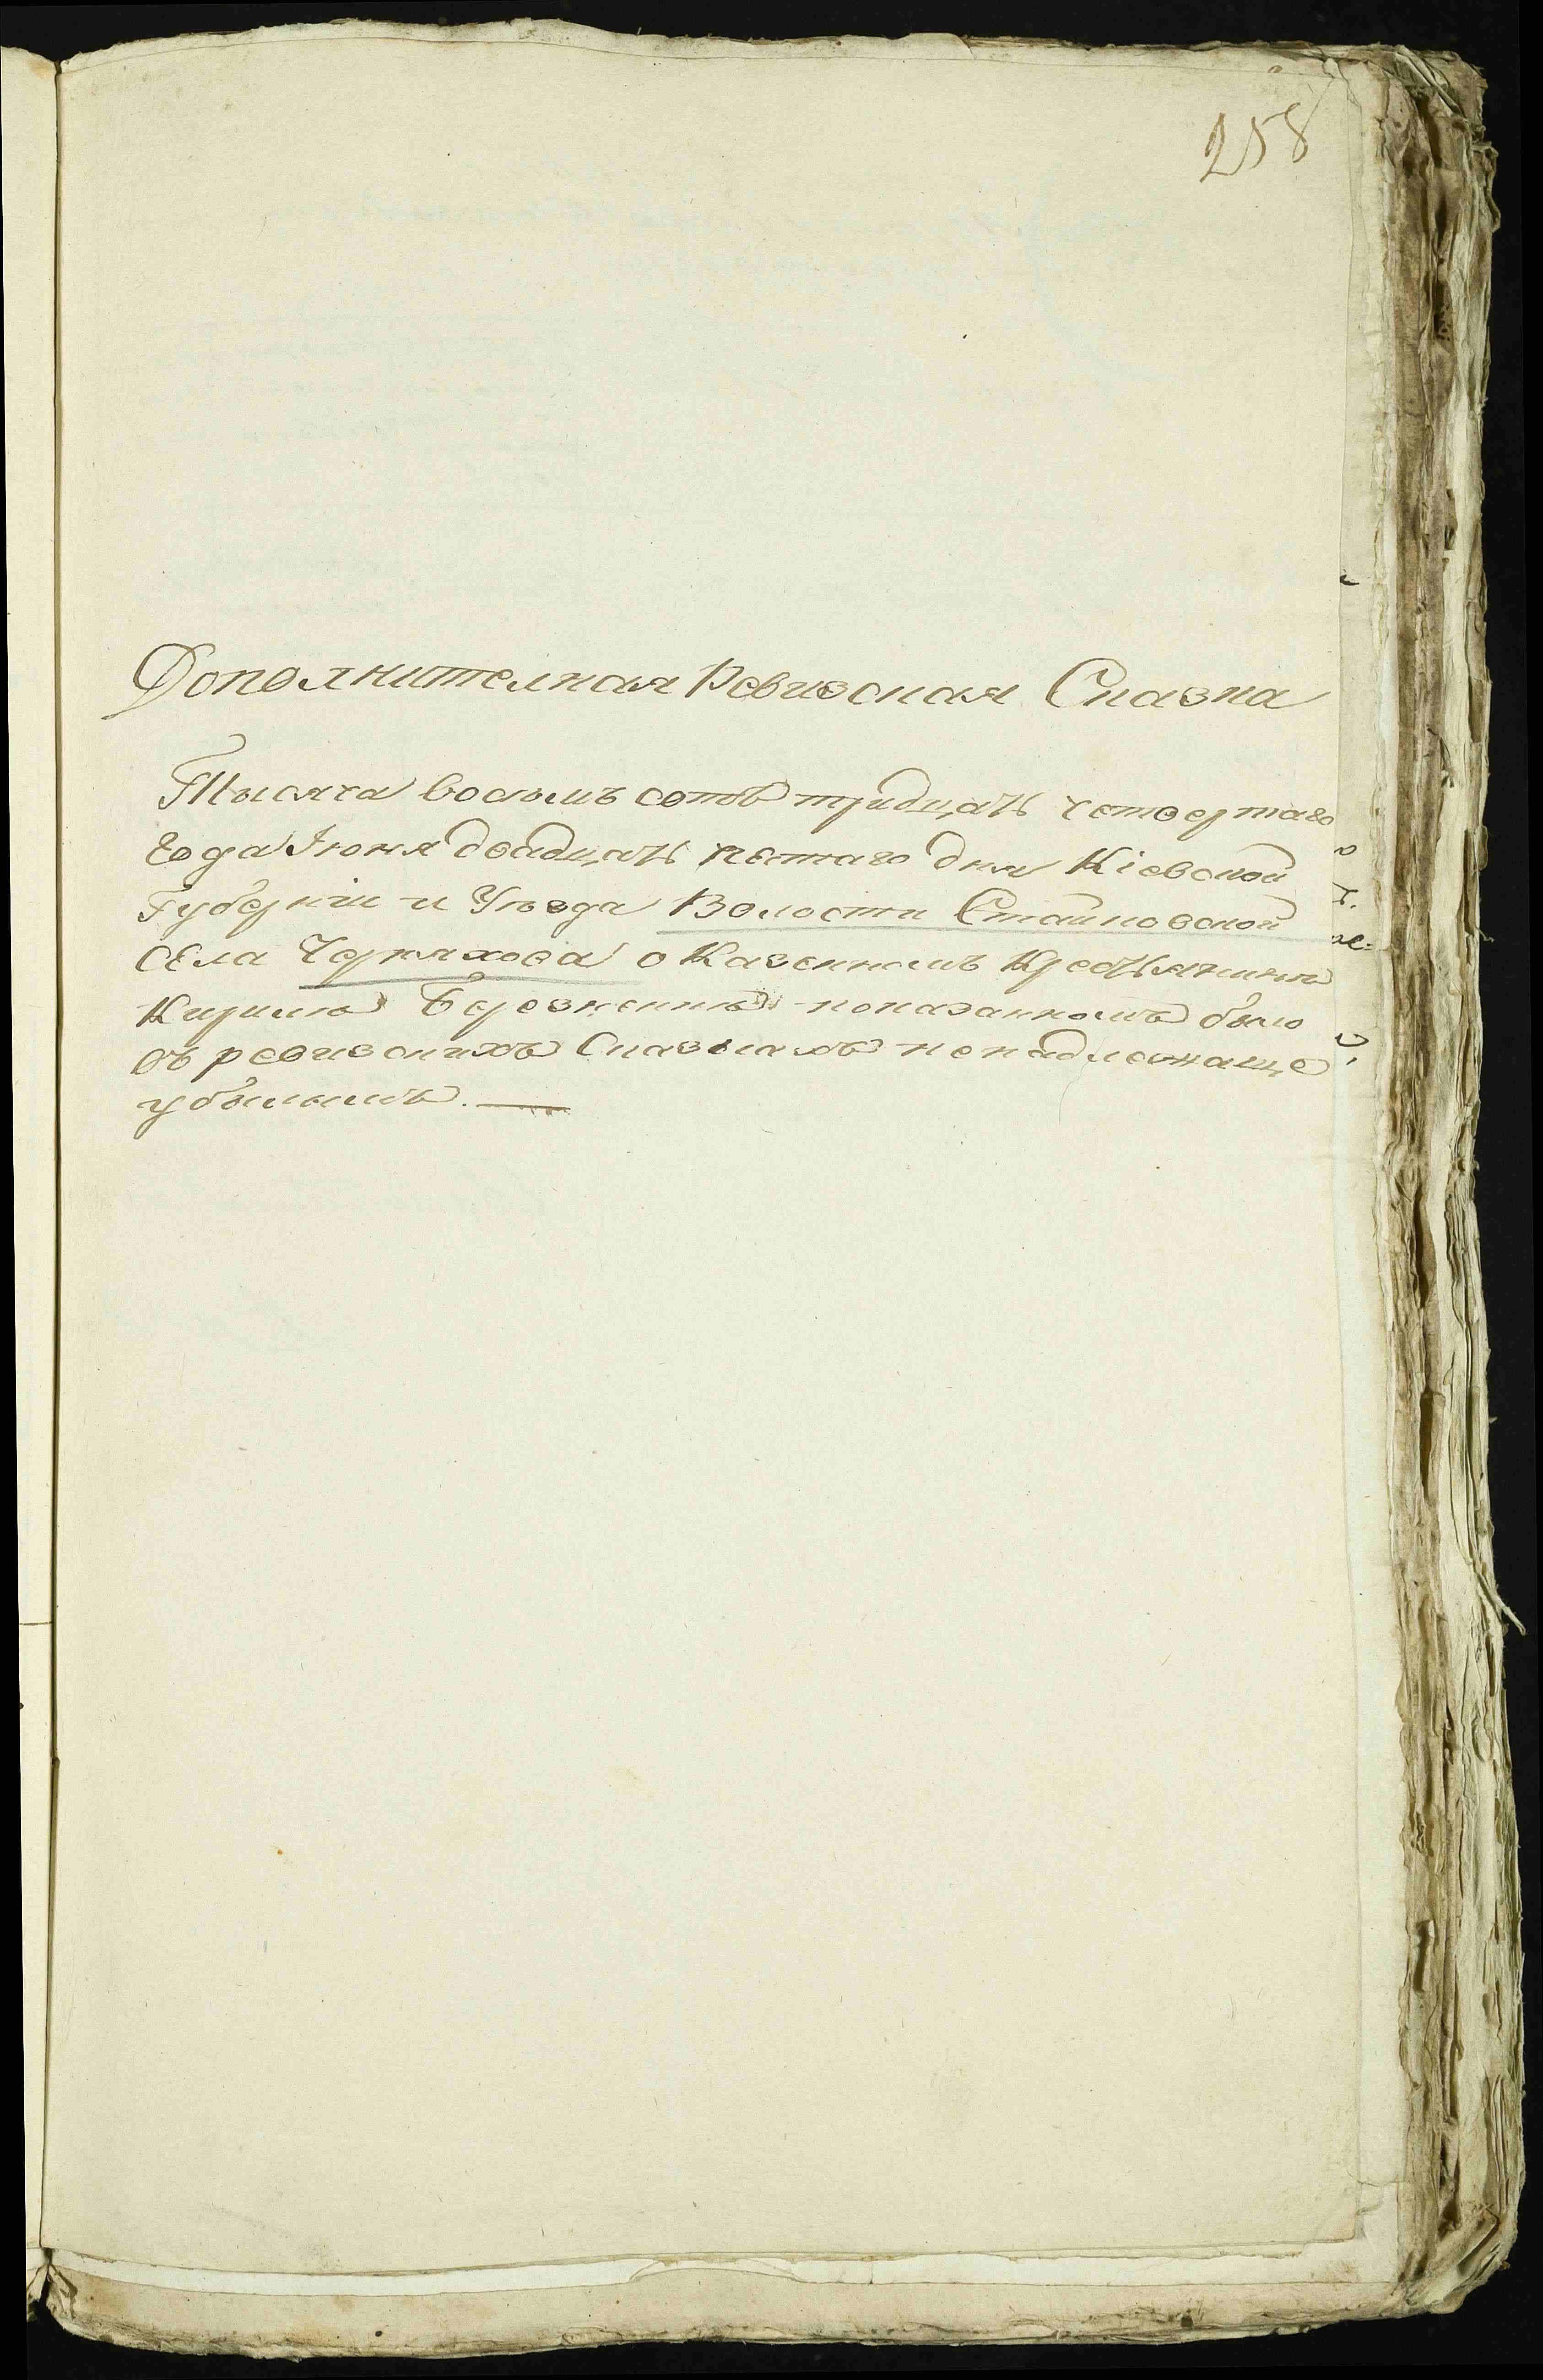 258
Дополнителная Ревизская Сказка
Тысяча восемъ сотъ тридцать четвертаго
Года Іюня двадцать пятаго дня Кіевской
Губерніи и Уѣзда Волости Стайковской
Села Черняхова о Казенномъ Крестьянинѣ
Кирилѣ Березненкѣ показанномъ было
въ ревизскихъ Сказкахъ ненадлежаще
убылымъ.